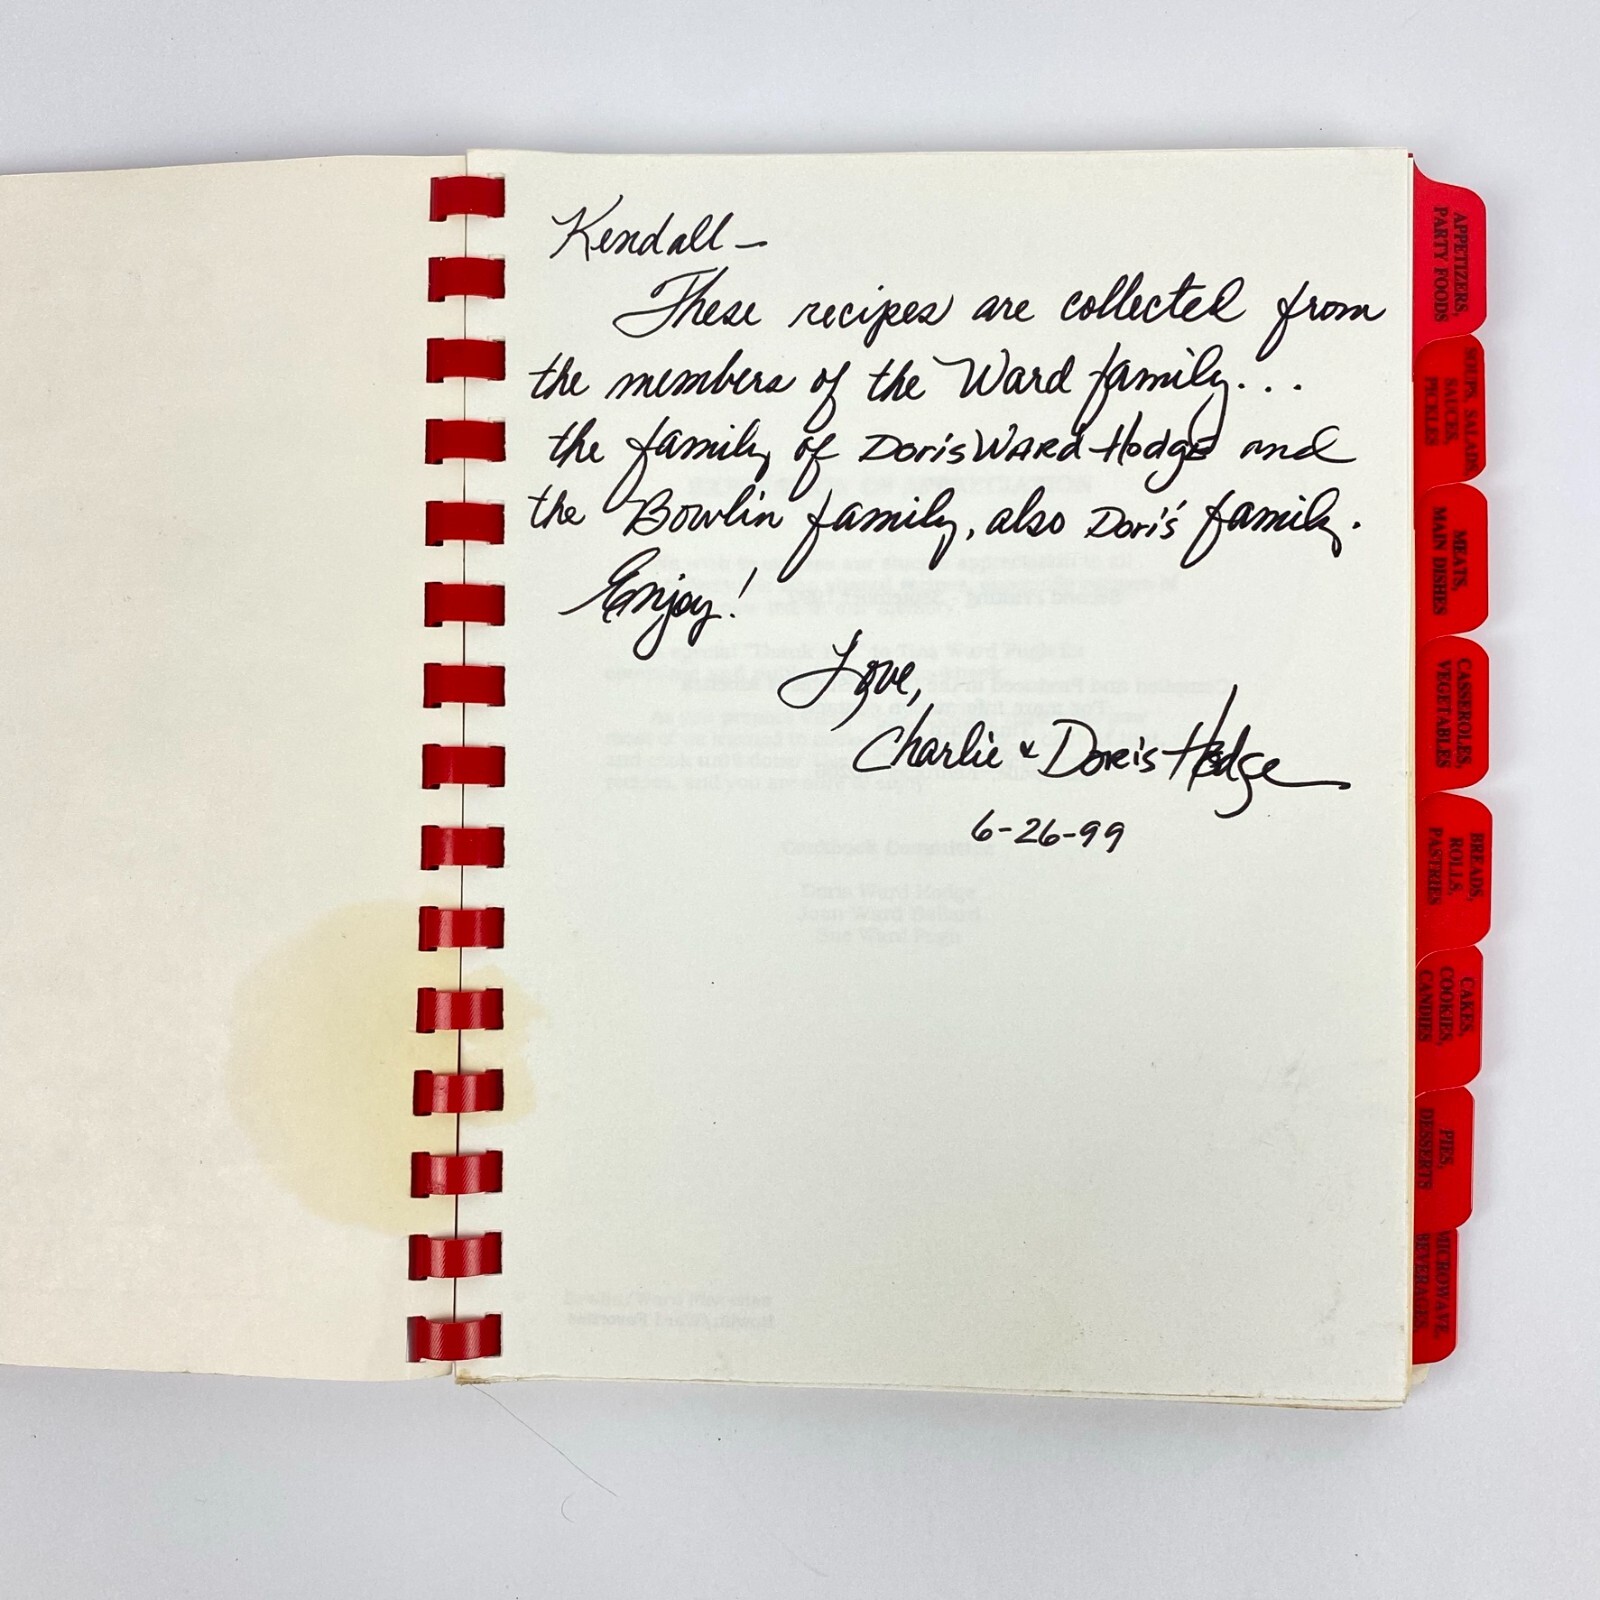 Kendall —
These recipes are collected from
the members of the Ward family...
the family of Doris WARD Hodge and
the Bowlin family, also Doris' family.
Enjoy!
Love,
Charlie & Doris Hodge
6-26-99
Cookbook Committee
Doris Ward Hodge
Joan Ward
Sue Ward Pugh
APPETIZERS,
PARTY FOODS
SOUPS, SALADS,
SAUCES,
PICKLES
MEATS,
MAIN DISHES
CASSEROLES,
VEGETABLES
BREADS,
ROLLS,
PASTRIES
CAKES,
COOKIES,
CANDIES
PIES,
DESSERTS
MICROWAVE,
BEVERAGES,